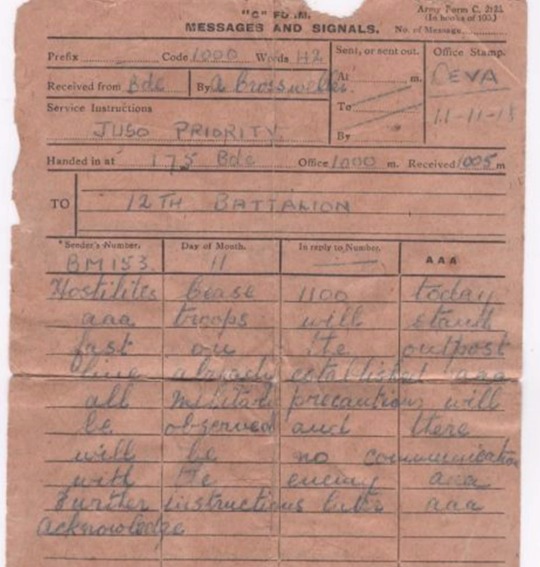 "C" FORM.
Army Form C. 2123.
(In books of 100.)
MESSAGES AND SIGNALS.
No. of Message
Prefix Code 1000 Words 42
Sent, or sent out.
Office Stamp.
Received from Bde By A Crosweller.
At m.
CEVA
Service Instructions
To
11-11-18
JUSO PRIORITY.
By
Handed in at 175 Bde Office 1000 m. Received 1005 m
TO 12TH BATTALION
*Sender's Number. Day of Month. In reply to Number. AAA
BM153. 11
Hostilites Cease 1100 today
aaa troops will stand
fast on the outpost
line already established aaa
all military precautions will
be observed and there
will be no communication
with the enemy aaa
Further instructions later aaa
acknowledge